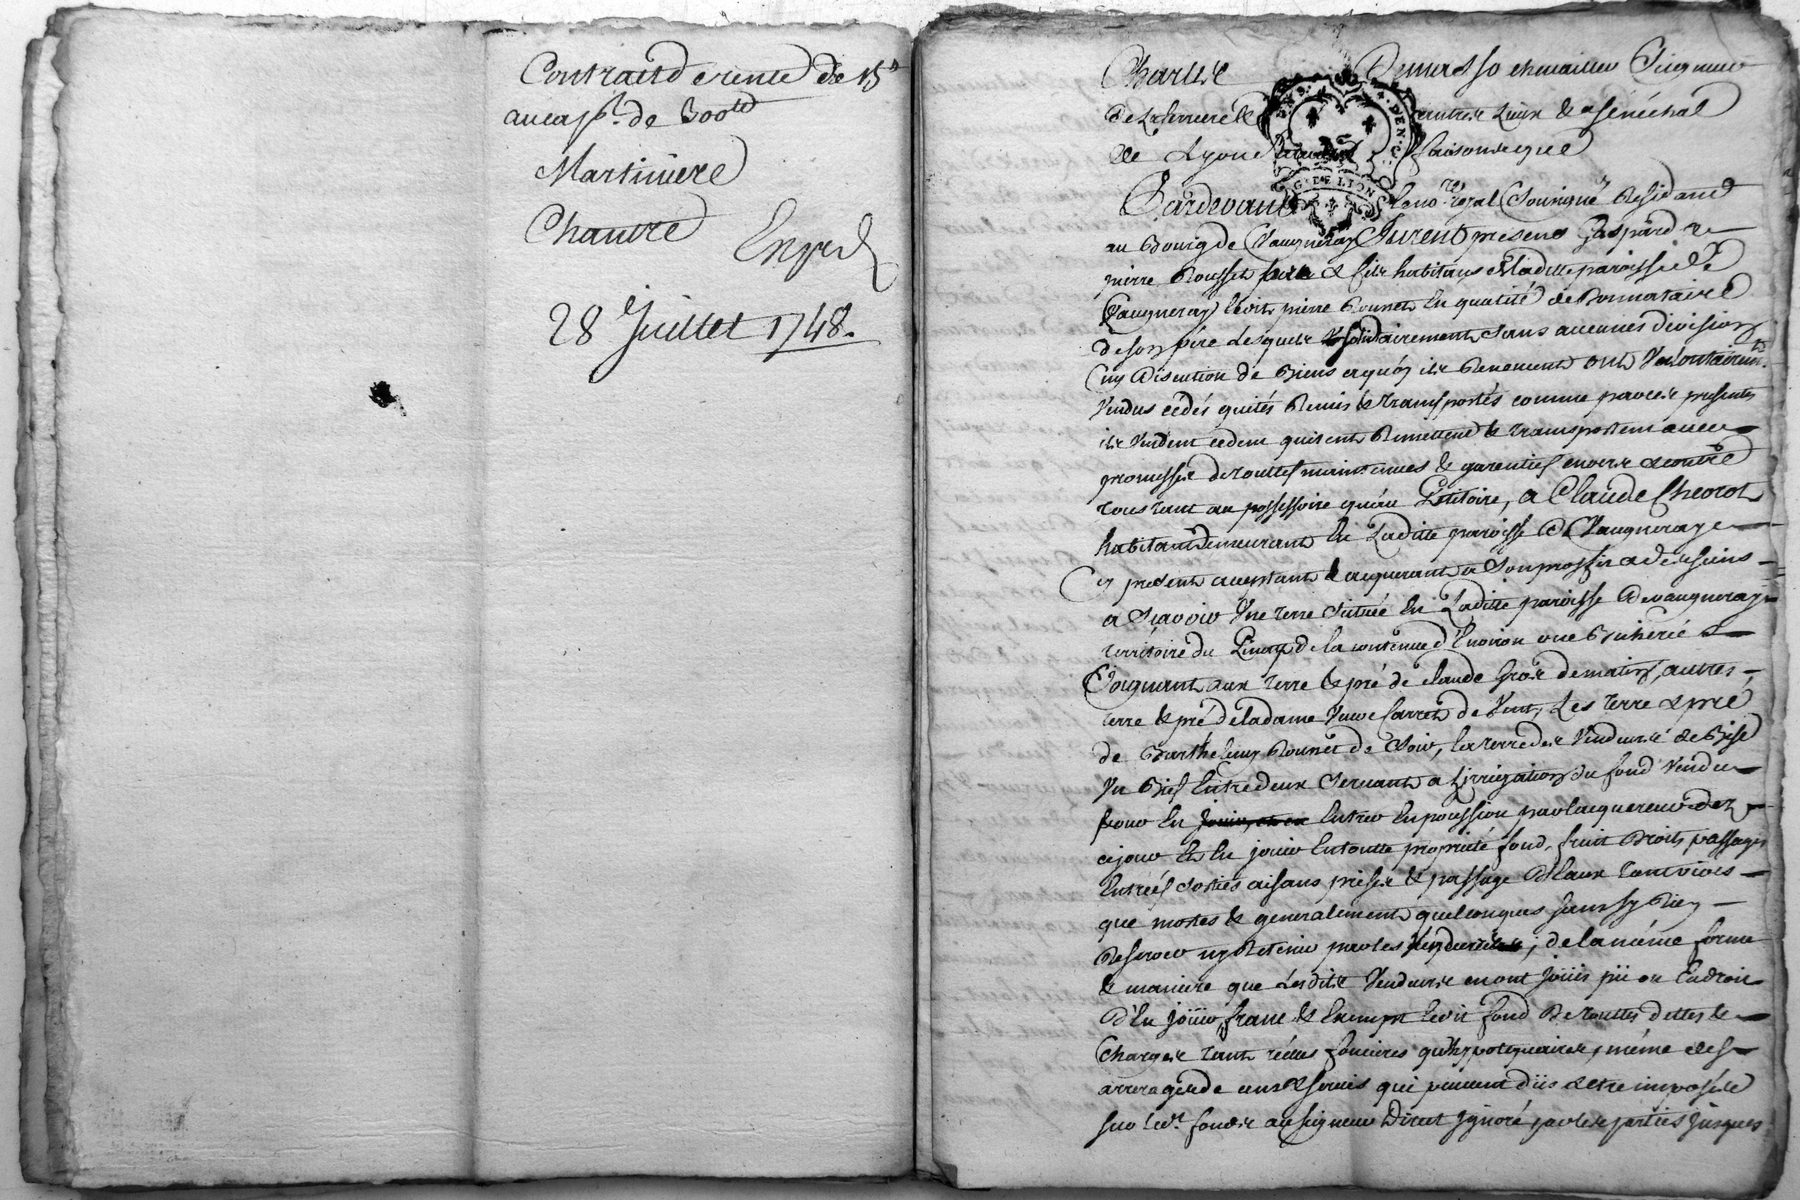 Contract de rente de 15ᵗᵗ
au cap.ᵃˡ de 300ᵗᵗ
Martiniere
Chantre
Exped
28 Juillet 1748.
Charles Demasso chevailler Seigneur
de La ferriere & autres Lieux & senéchal
de Lyon faisons que
Pardevant le no.ʳᵉ royal Soussigné Residant
au Bourg de Vaugneray furent presens Gaspard &
pierre Bonnet pere & fils habitans de Laditte paroisse de
Vaugneray ledit pierre Bonnet en qualité de Donnataire
de son pere Lesquels solidairement sans aucunes division
ny discution de Biens a quoy ils Renoncent ont Vollontairemt.
Vendus cedés quités Remis & transportés comme par ces presentes
ils Vendent cedent quitent Remettent & transportent avec
promesse de touttes maintenues & garenties envers & contre
tous tant au possessoire qu'au Pétitoire, a Claude Cheorot
habitant demeurant En Laditte paroisse de Vaugneraye
cy present acceptant & acquerant a Son proffit & des siens
a Scavoir Une terre Située En Laditte paroisse de Vaugneray
territoire du Pinay de la contenue d'Environ une Bicherée
Joignant aux terre & pré de claude Gros de matin, autres
terre & pré de la dame Veuve Carret de Vent, Les terre & pré
de Barthelemy Bonnet de Soir, la terre des Vendeurs de Bise
Un Bief Entredeux Servant a L'irrigation du fond Vendu
pour En Entrer En possession par l'acquereur dez
ce jour Et En jouir En toutte propriété fond, fruit Droits passages
Entrées Sorties aisans prises & passage d'Eaux tant vives
que mortes & generalement quelconques sans sy Rien
Reserver ny Retenir par les Vendeurs; de la même forme
& maniere que Lesdits Vendeurs en ont Joüis pû ou En droit
d'En Joüir, franc & Exempt ledit fond De touttes dettes &
Charges tant réelles foncieres qu'hypotequaires, même des
arrerages de cens & servis qui peuvent düs & etre imposés
sur led.ᵗ fond au seigneur Direct Ignoré par les parties Jusques